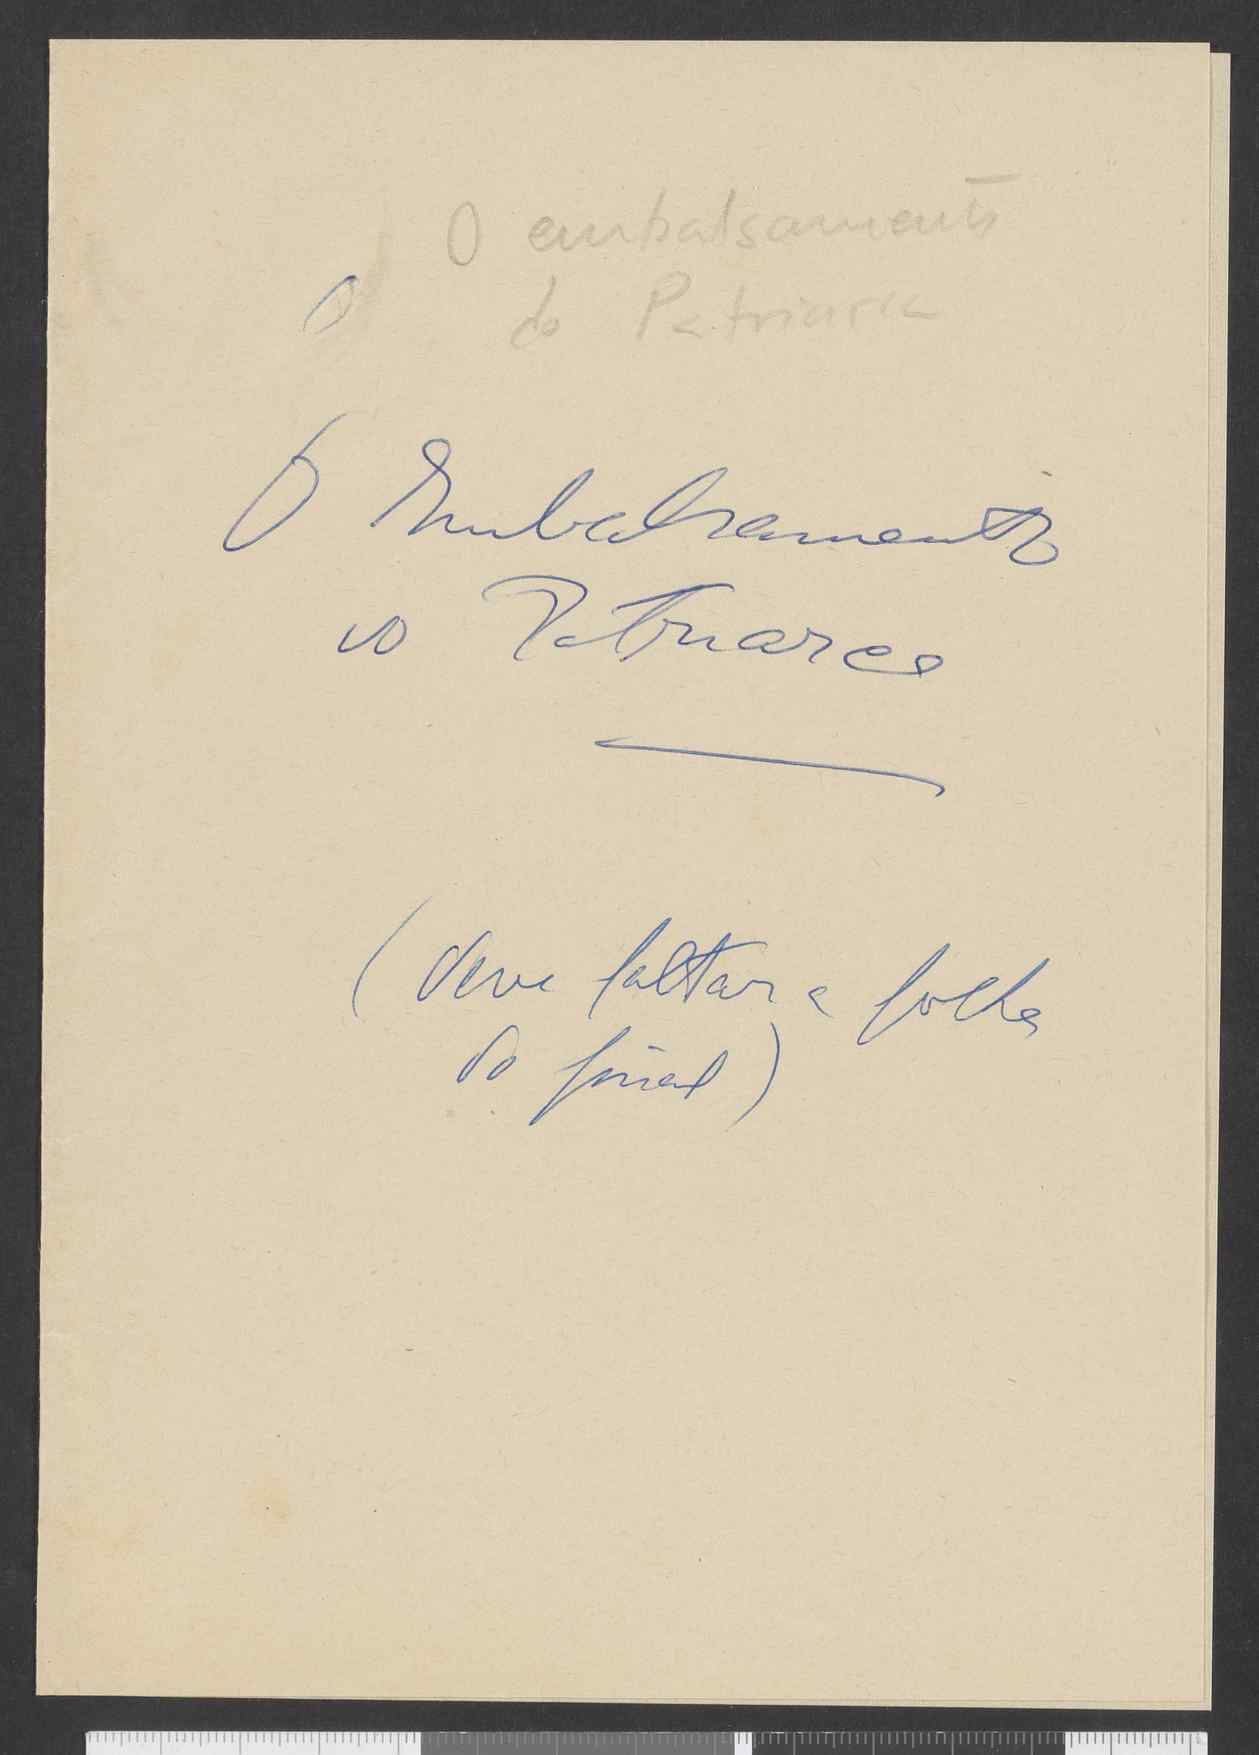 O embalsamento
do Patriarca
O
O Embalsamento
do Patriarca
(deve faltar a folha
do final)